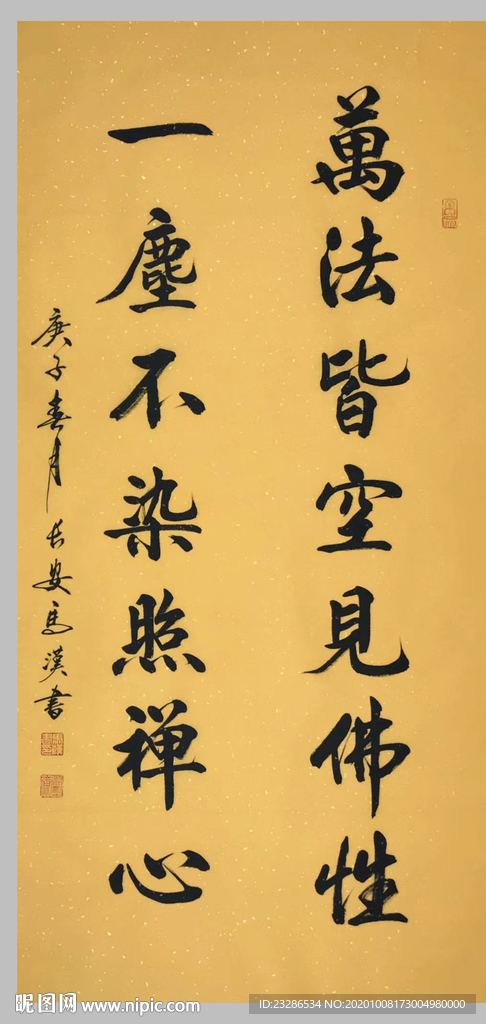 萬法皆空見佛性
一塵不染照禅心
庚子春月長安馬漢書
昵图网 www.nipic.com
ID:23286534 NO:20201008173004980000